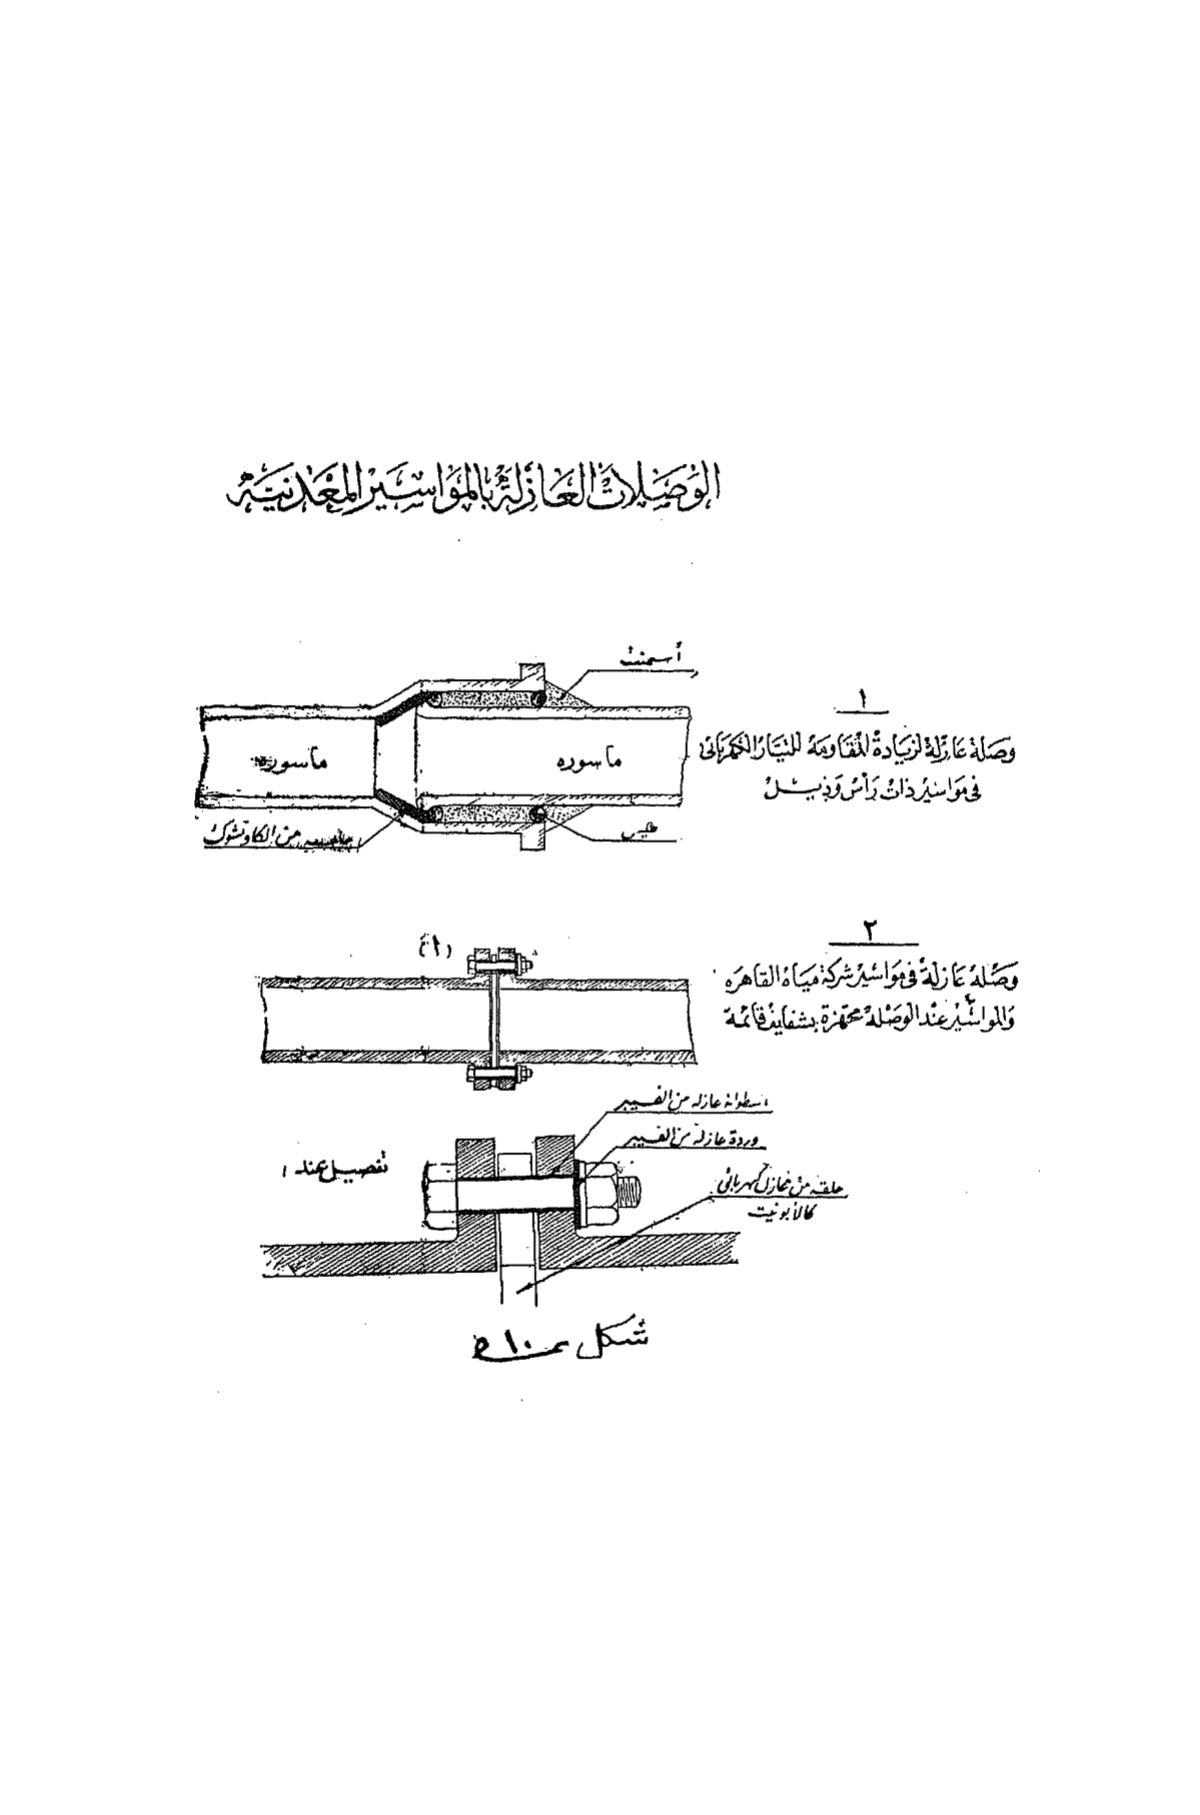 الوصلات العازلة بالمواسير المعدنية
أسمنت
١
وصلة عازلة لزيادة المقاومة للتيار الكهربائى
فى مواسير ذات رأس وذيل
ماسوره
ماسوره
من الكاوتشوك
٢
وصلة عازلة فى مواسير شركة مياه القاهره
والمواسير عند الوصلة مجهزة بشفايف قائمة
(أ)
اسطوانه عازله من الفيبر
وردة عازلة من الفيبر
تفصيل عند ا
حلقه من عازل كهربائى
كالأبونيت
شكل